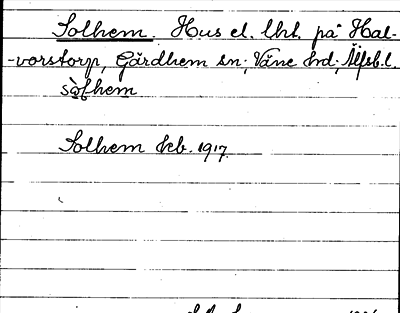 Solhem. Hus el. lht. på Hal-
-vorstorp, Gärdhem sn; Väne hd; Älfsb. l.
sòłhem
Solhem kb. 1917.